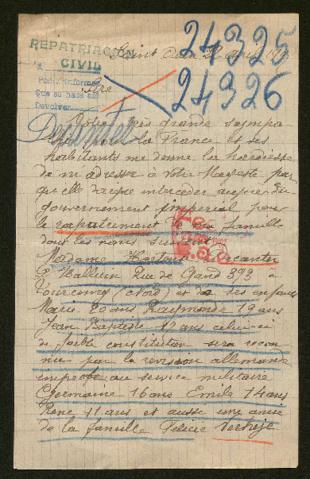 24325
24326
REPATRIACION
CIVIL
Saint
Sire
Votre très grande sympa
pour la France et ses
habitants me donne la hardiesse
de m'adresser à Votre Majesté pour
qu'elle daigne intercéder auprès du
gouvernement impérial pour
le rapatriement de ma famille
dont les noms suivent
Madame Decanter
d'Halluin Rue de Gand 393 à
Tourcoing (Nord) et de ses enfants
Marie 20 ans Raymonde 19 ans
Jean Baptiste 17 ans celui-ci
de faible constitution sera recon
nu par la revision allemande
impropre au service militaire
Germaine 16 ans Emile 14 ans
René 11 ans et aussi une amie
de la famille Félicie